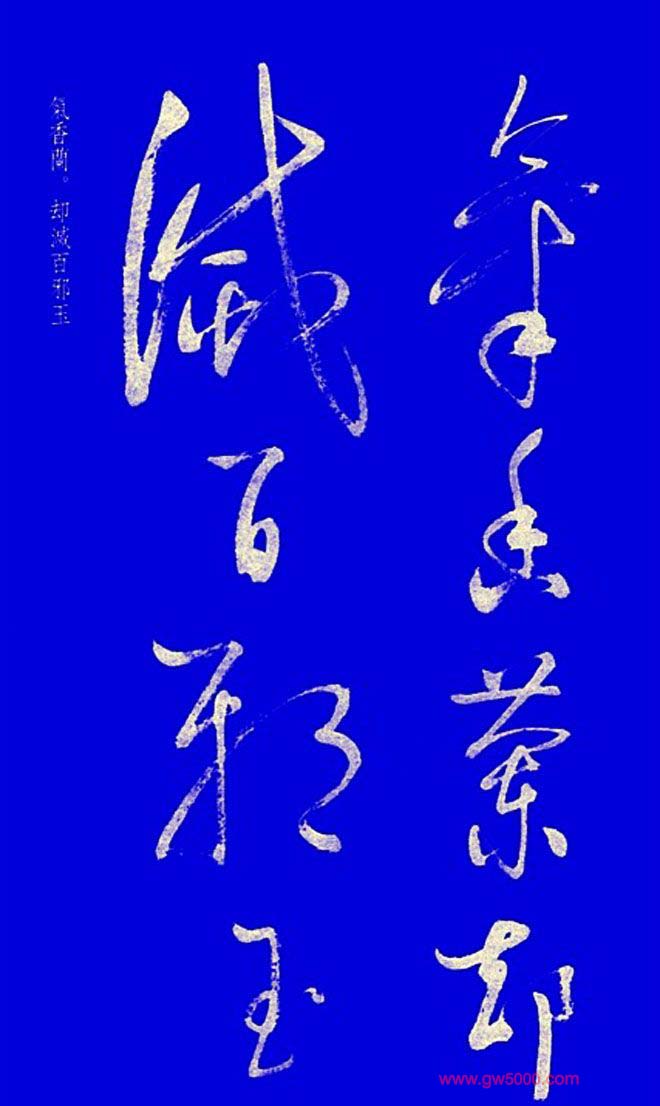 氣香蘭却
滅百邪玉
氣香蘭。却滅百邪玉
www.gw5000.com